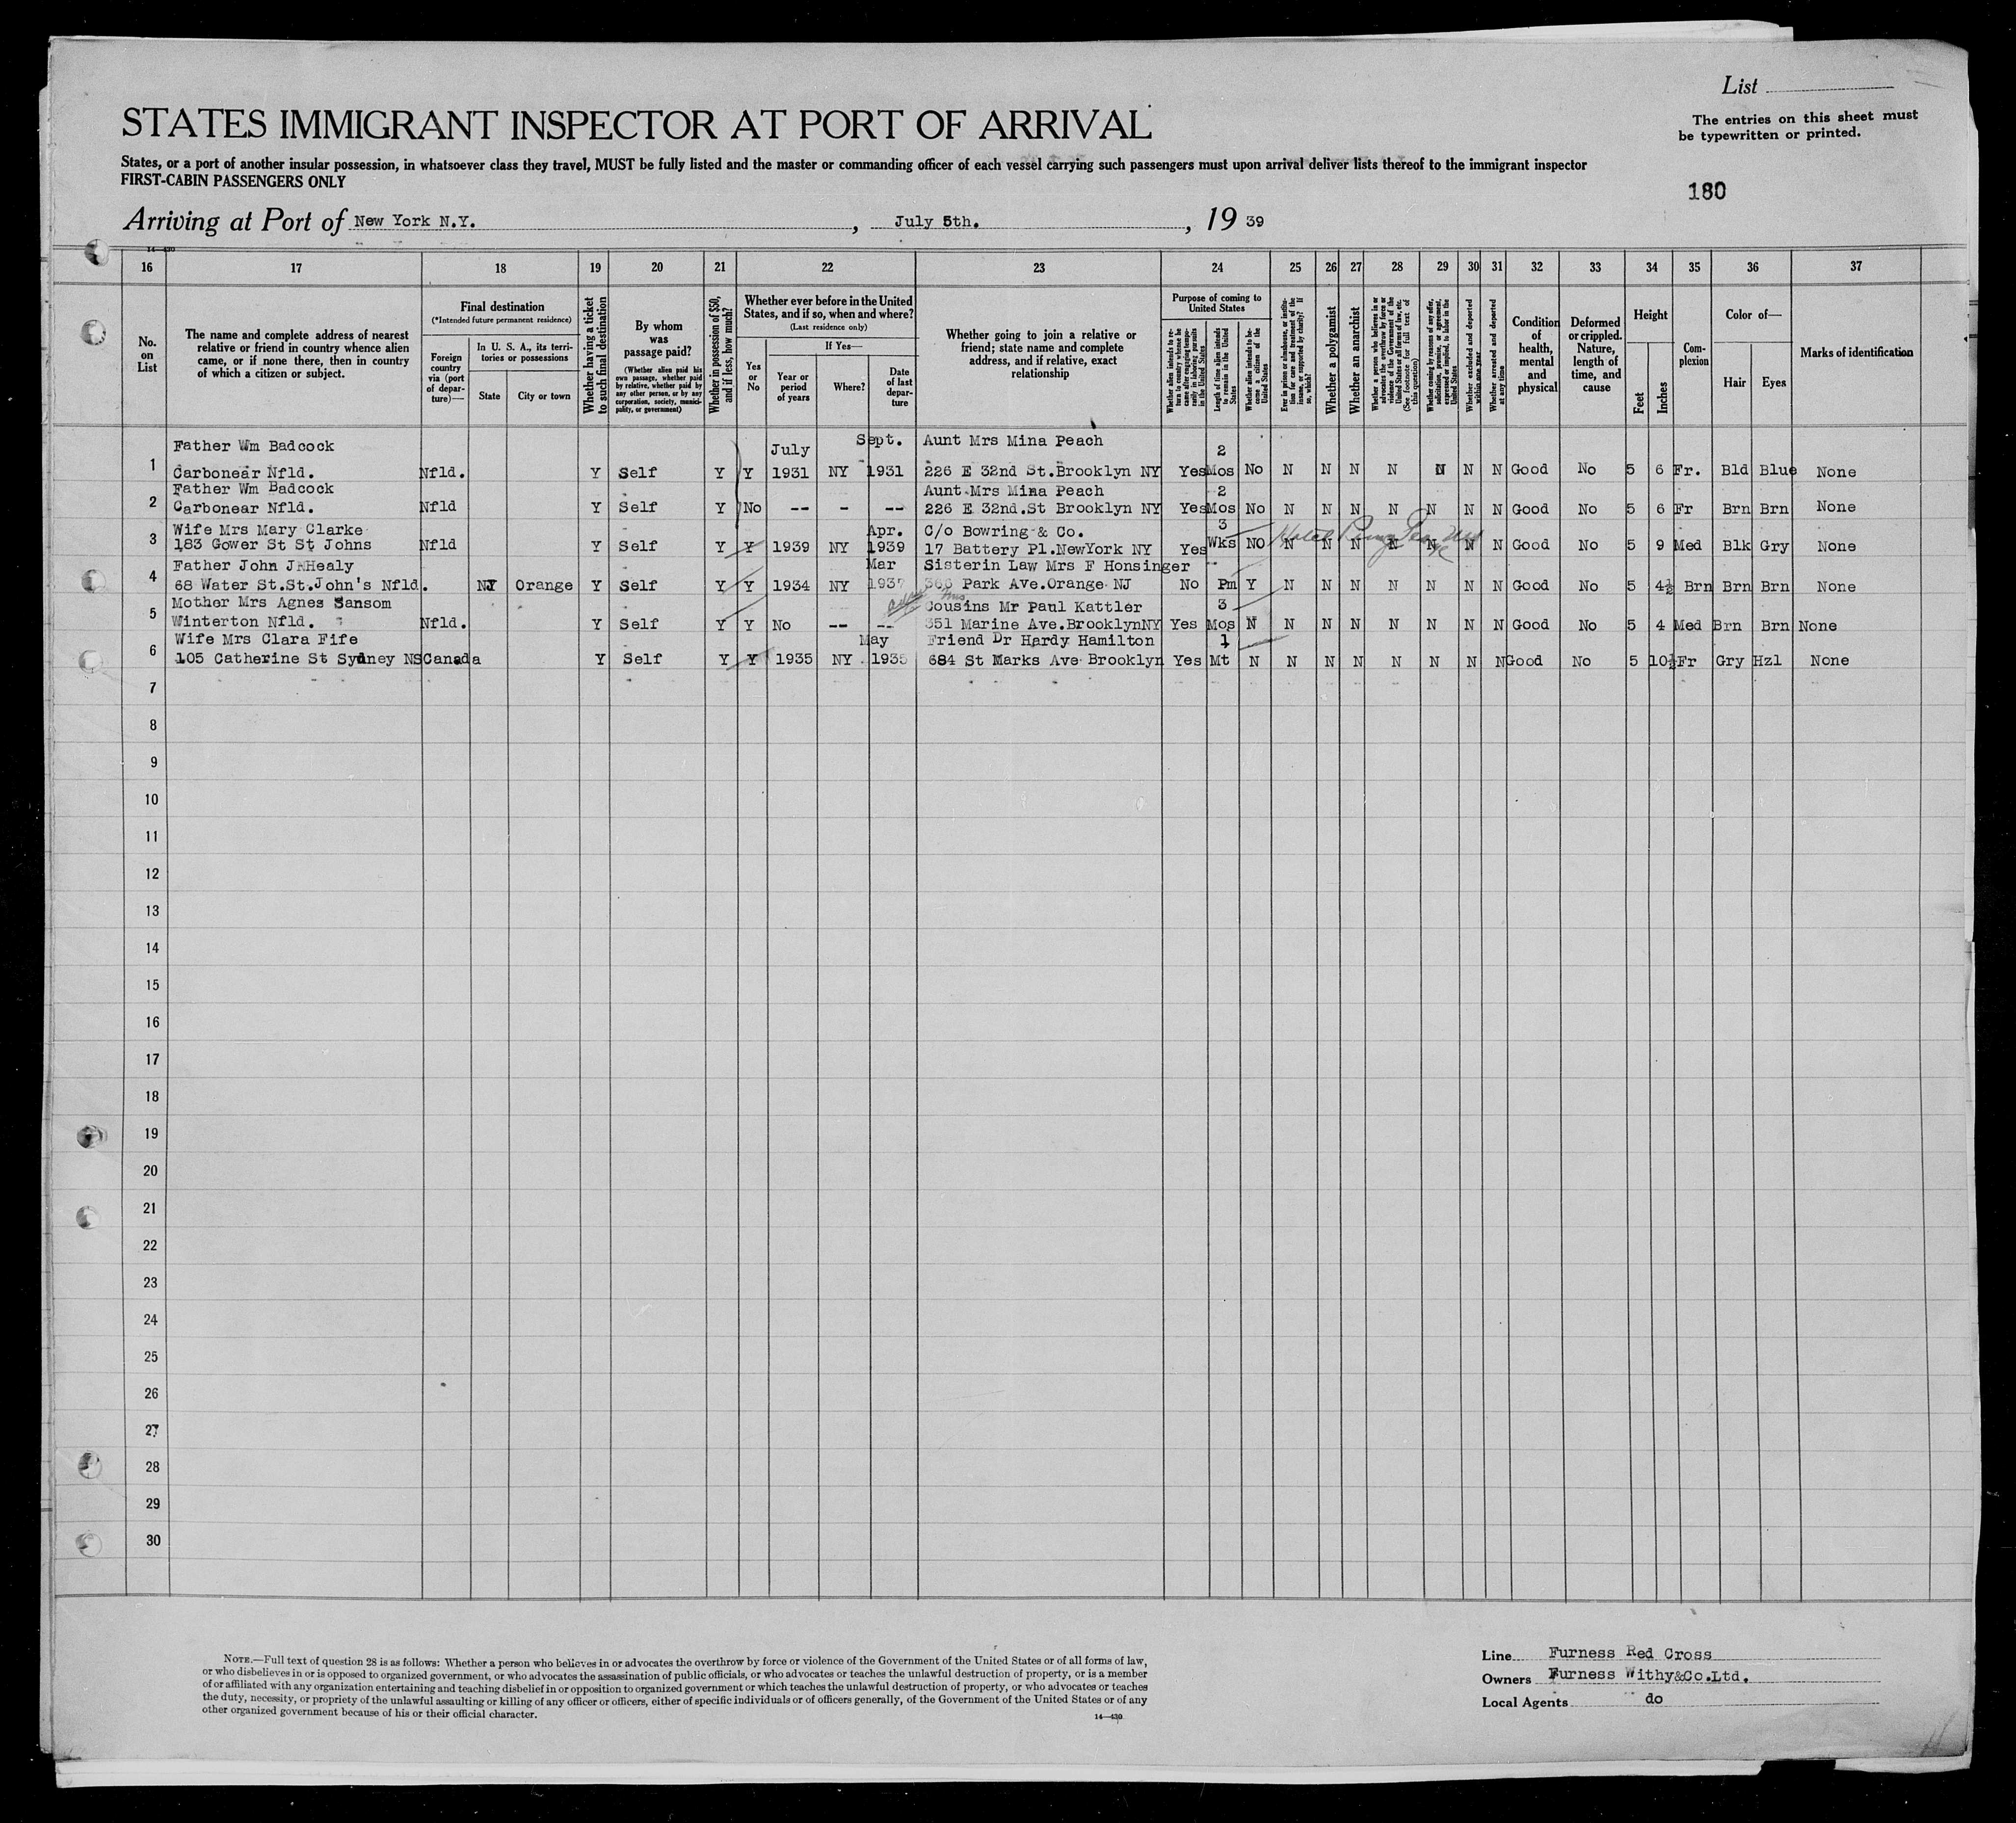 List
STATES IMMIGRANT INSPECTOR AT PORT OF ARRIVAL
The entries on this sheet must
be typewritten or printed.
States, or a port of another insular possession, in whatsoever class they travel, MUST be fully listed and the master or commanding officer of each vessel carrying such passengers must upon arrival deliver lists thereof to the immigrant inspector
FIRST-CABIN PASSENGERS ONLY
180
Arriving at Port of New York N.Y. , July 5th. , 19 39
14—430
16 17 18 19 20 21 22 23 24 25 26 27 28 29 30 31 32 33 34 35 36 37
No.
on
List
The name and complete address of nearest
relative or friend in country whence alien
came, or if none there, then in country
of which a citizen or subject.
Final destination
(*Intended future permanent residence)
Foreign
country
via (port
of depar-
ture)—
In U. S. A., its terri-
tories or possessions
State
City or town
Whether having a ticket
to such final destination
By whom
was
passage paid?
(Whether alien paid his
own passage, whether paid
by relative, whether paid by
any other person, or by any
corporation, society, munici-
pality, or government)
Whether in possession of $50,
and if less, how much?
Whether ever before in the United
States, and if so, when and where?
(Last residence only)
Yes
or
No
If Yes—
Year or
period
of years
Where?
Date
of last
depar-
ture
Whether going to join a relative or
friend; state name and complete
address, and if relative, exact
relationship
Purpose of coming to
United States
Whether alien intends to re-
turn to country whence he
came after engaging tempo-
rarily in laboring pursuits
in the United States
Length of time alien intends
to remain in the United
States
Whether alien intends to be-
come a citizen of the
United States
Ever in prison or almshouse, or institu-
tion for care and treatment of the
insane, or supported by charity? If
so, which?
Whether a polygamist
Whether an anarchist
Whether a person who believes in or
advocates the overthrow by force or
violence of the Government of the
United States or all forms of law, etc.
(See footnote for full text of
this question)
Whether coming by reason of any offer,
solicitation, promise, or agreement,
expressed or implied, to labor in the
United States
Whether excluded and deported
within one year
Whether arrested and deported
at any time
Condition
of
health,
mental
and
physical
Deformed
or crippled.
Nature,
length of
time, and
cause
Height
Feet
Inches
Com-
plexion
Color of—
Hair
Eyes
Marks of identification
Father Wm Badcock July Sept. Aunt Mrs Mina Peach 2
1 Carbonear Nfld. Nfld. Y Self Y Y 1931 NY 1931 226 E 32nd St.Brooklyn NY Yes Mos No N N N N N N N Good No 5 6 Fr. Bld Blue None
Father Wm Badcock Aunt Mrs Mina Peach 2
2 Carbonear Nfld. Nfld Y Self Y No -- - -- 226 E 32nd.St Brooklyn NY Yes Mos No N N N N N N N Good No 5 6 Fr Brn Brn None
Wife Mrs Mary Clarke Apr. C/o Bowring & Co. 3
3 183 Gower St St Johns Nfld Y Self Y Y 1939 NY 1939 17 Battery Pl.NewYork NY Yes Wks NO N N N N N N N Good No 5 9 Med Blk Gry None
Father John J Healy Mar Sisterin Law Mrs F Honsinger
4 68 Water St.St.John's Nfld. NJ Orange Y Self Y Y 1934 NY 1937 Park Ave.Orange NJ No Pm Y N N N N N N N Good No 5 4½ Brn Brn Brn None
Mother Mrs Agnes Sansom Cousins Mr Paul Kattler 3
5 Winterton Nfld. Nfld. Y Self Y Y No -- -- 351 Marine Ave.BrooklynNY Yes Mos N N N N N N N N Good No 5 4 Med Brn Brn None
Wife Mrs Clara Fife May Friend Dr Hardy Hamilton 1
6 105 Catherine St Sydney NS Canada Y Self Y Y 1935 NY 1935 684 St Marks Ave Brooklyn Yes Mt N N N N N N N N Good No 5 10½ Fr Gry Hzl None
7
8
9
10
11
12
13
14
15
16
17
18
19
20
21
22
23
24
25
26
27
28
29
30
NOTE.—Full text of question 28 is as follows: Whether a person who believes in or advocates the overthrow by force or violence of the Government of the United States or of all forms of law,
or who disbelieves in or is opposed to organized government, or who advocates the assassination of public officials, or who advocates or teaches the unlawful destruction of property, or is a member
of or affiliated with any organization entertaining and teaching disbelief in or opposition to organized government or which teaches the unlawful destruction of property, or who advocates or teaches
the duty, necessity, or propriety of the unlawful assaulting or killing of any officer or officers, either of specific individuals or of officers generally, of the Government of the United States or of any
other organized government because of his or their official character.
14—430
Line Furness Red Cross
Owners Furness Withy&Co.Ltd.
Local Agents do